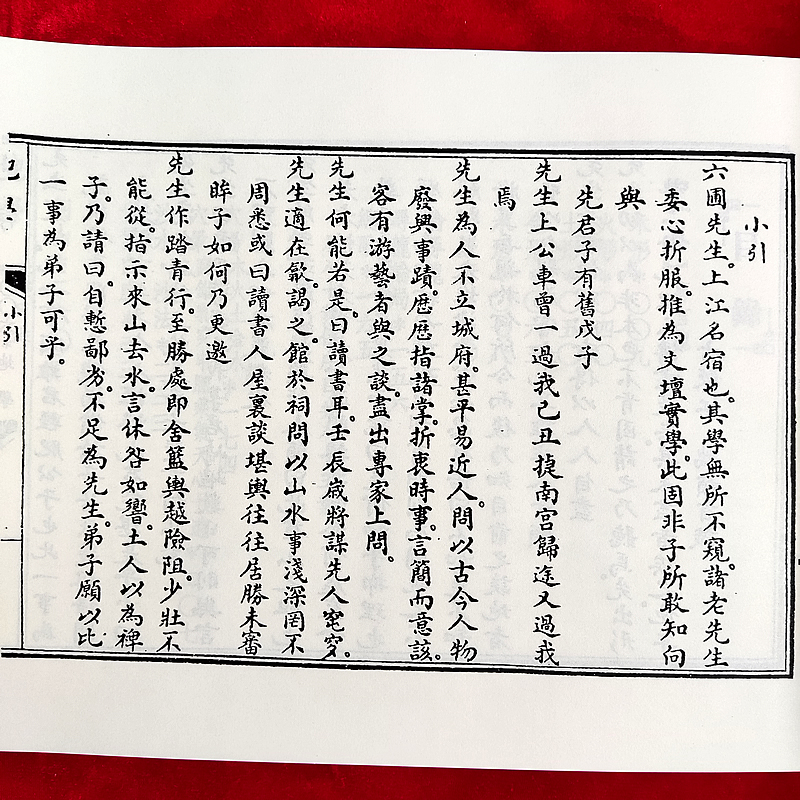 小引
六圃先生。上江名宿也。其學無所不窺。諸老先生
委心折服。推為文壇實學。此固非子所敢知向
與
先君子有舊戊子
先生上公車曾一過我己丑捷南宮歸途又過我
焉
先生為人不立城府。甚平易近人。問以古今人物
廢興事蹟。歷歷指諸掌。折衷時事。言簡而意該。
客有游藝者與之談。盡出專家上問。
先生何能若是。曰讀書耳。壬辰歲將謀先人窀穸。
先生適在歙。謁之。館於祠問以山水事淺深罔不
周悉或曰讀書人屋裏談堪輿往往居勝未審
眸子如何乃更邀
先生作踏青行。至勝處即舍籃輿越險阻。少壯不
能從。指示來山去水。言休咎如響。土人以為裨
子。乃請曰。自慙鄙劣。不足為先生。弟子願以比
一事為弟子可乎。
小引